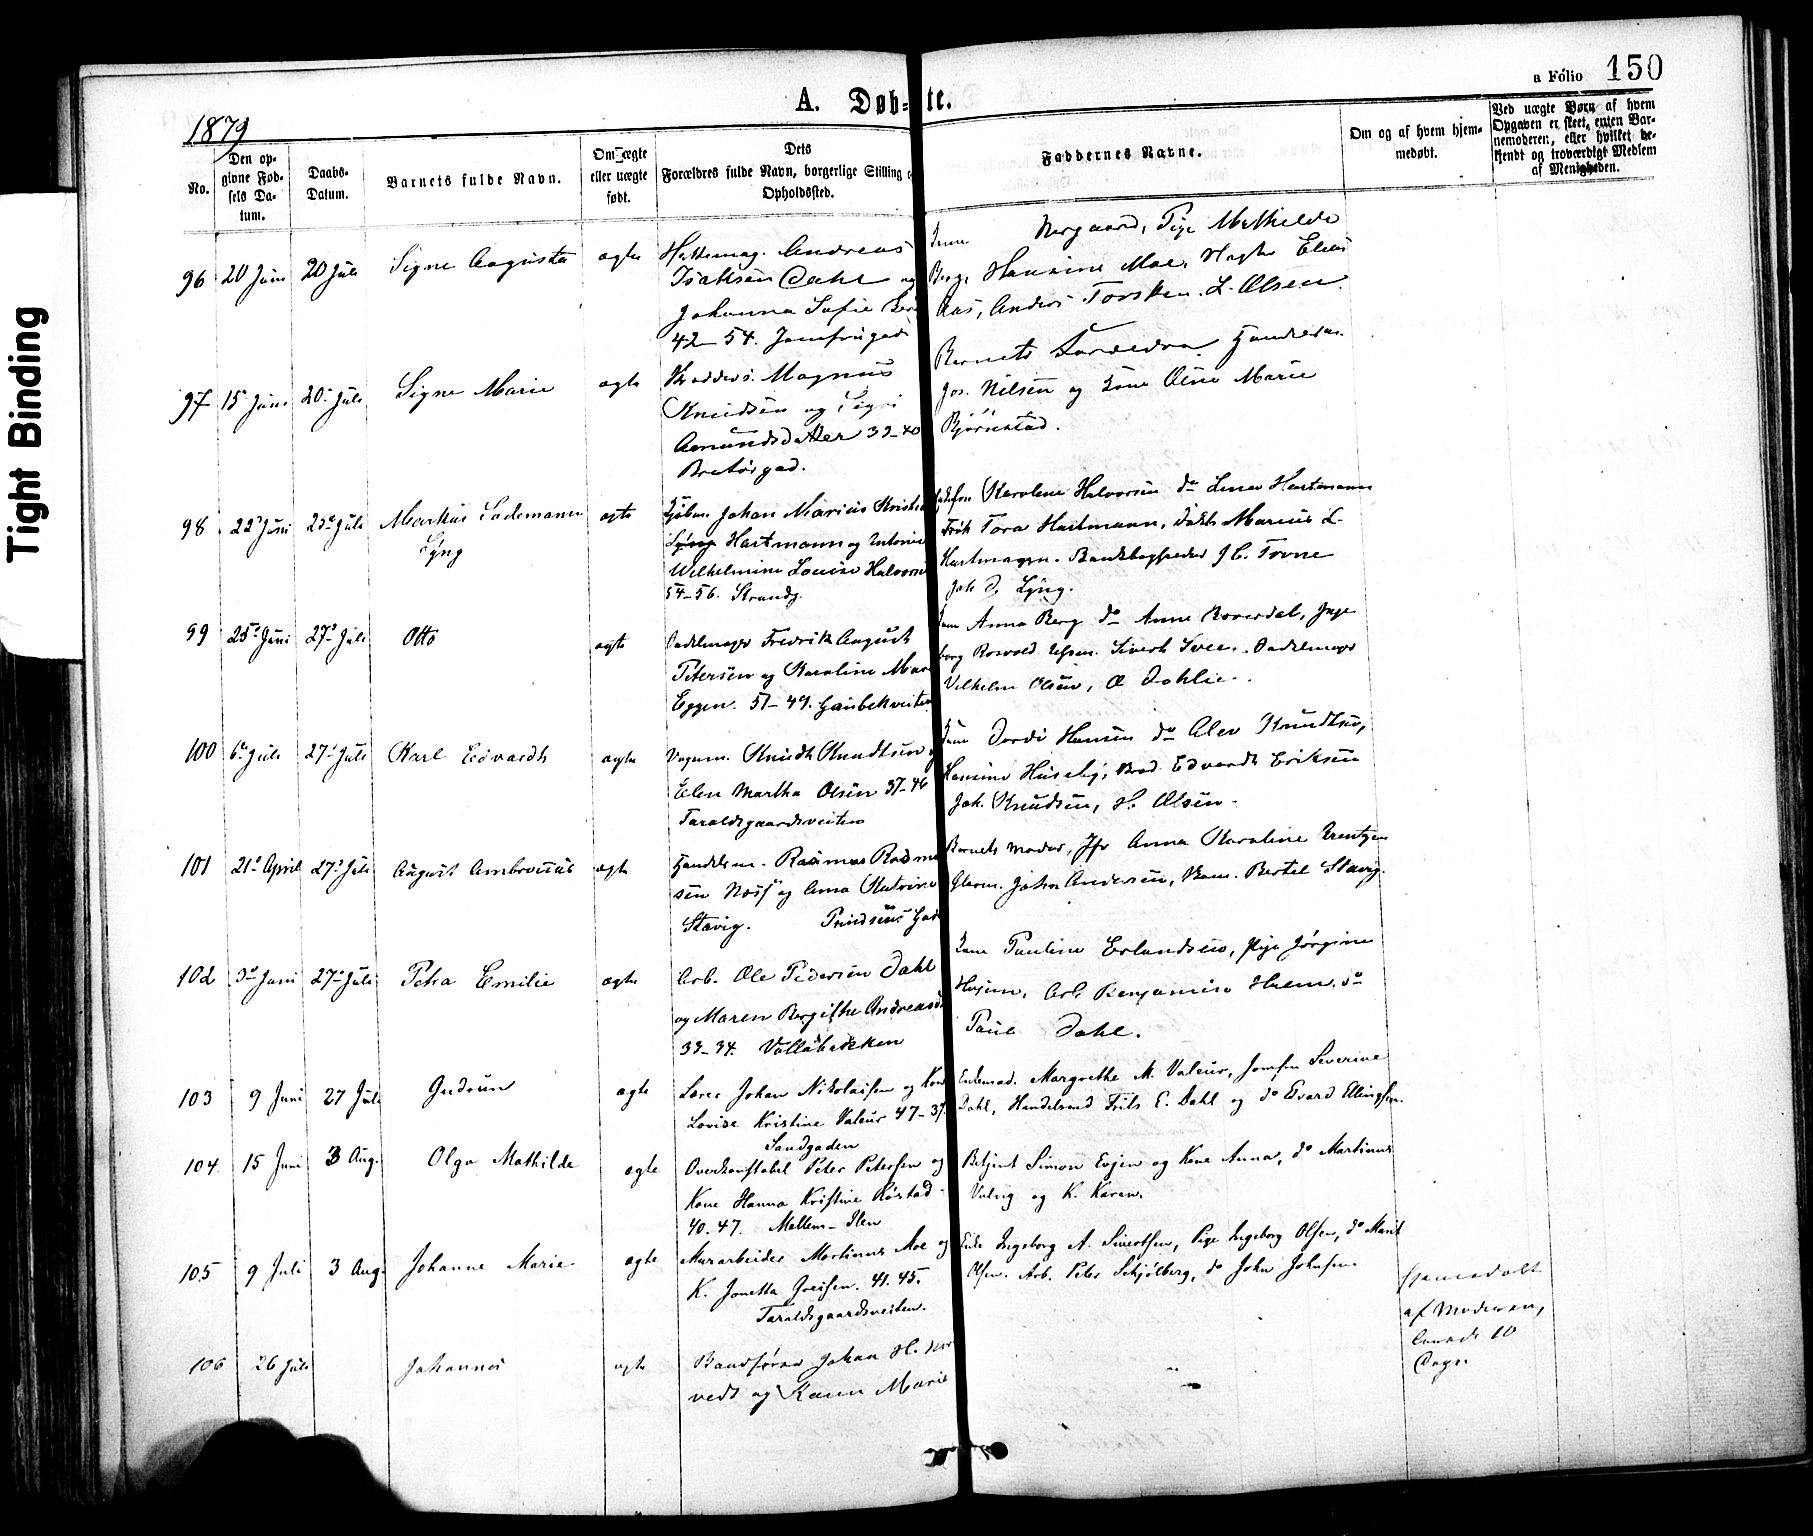 Tight Binding
a Folio 150
A. Døb-te.
1879
No.
Den opgivne Fødsels Datum.
Daabs-Datum.
Barnets fulde Navn.
Om ægte eller uægte født.
Dets Forældres fulde Navn, borgerlige Stilling o
Opholdssted.
Faddernes Navne.
Om og af hvem hjemmedøbt.
Ved uægte Børn af hvem Opgaven er skeet, enten Barnemoderen, eller hvilket bekjendt og troværdigt Medlem af Menigheden.
96 20 Juni 20 Juli Signe Augusta ægte
Hattemag. Andreas
Isaksen Dahl og
Johanna Sofie
42-54. Jomfrugad
Nergaard, Pige Mathilde
Berge Hansine Moe, Elias
Aas, Anders Torsken. L. Olsen.
97 15 Juni 20 Juli Signe Marie ægte
Magnus
Knudsen og Sigri
Amundsdatter 39-40
Bratørgad.
Barnets Forældre
Jos. Nilsen og Kone Oline Marie
Bjørnstad.
98 22 Juni 25 Juli Markus Lademann ægte
Lyng
Kjøbm. Johan Marius Kristi
Lyng Hartmann og Antonie
Wilhelmine Louise Halvorse
54-56. Strandg.
Karoline Halvorsen do Lina Hartmann
Frøk Tora Hartmann, Marius L.
Hartmann. Bankbogfører J C. Torne
Joh D. Lyng.
99 25 Juni 27 Juli Otto ægte
Sadelmager Fredrik August
Petersen og Karoline Mar
Eggen. 51-49. Gaubekveiten
Anna Berg do Anne Roverdal, Inge
borg Rosvold Sivert Svee. Sadelmager
Vilhelm Olsen, O Dahlie.
100 6 Juli 27 Juli Karl Edvardt ægte
Vognm. Knudt Knudtsen o
Elen Martha Olsen 37-46
Taraldsgaardsveiten
Kone Dordi Hansen do Olev Knudtsen,
Hansine Huseby, Edvardt Eriksen
Joh. Knudsen, H. Olsen.
101 21 April 27 Juli August Ambrosius ægte
Handelsm. Rasmus Rasmu
sen Noss og Anna Katrine
Stavig. Prindsens Gad
Barnets Moder, Jfr Anna Karoline Brentzen
Glarm. John Andersen, Bertel Stavig.
102 3 Juni 27 Juli Petra Emilie ægte
Arb. Ole Pedersen Dahl
og Maren Bergithe Andreasd
33-34. Vollabakken
Kone Pauline Erlandsen, Pige Jørgine
Arb. Benjamin Hulem, do
Paul Dahl.
103 9 Juni 27 Juli Gudrun ægte
Lærer Johan Nikolaisen og Kon
Lovise Kristine Valeur 47-37
Sandgaden
Enkemad. Margrethe M. Valeur, Jomfru Severine
Dahl, Handelsmd Frits E. Dahl og do Evard Ellingsen.
104 15 Juni 3 Aug. Olga Mathilde ægte
Overkonstabel Peter Petersen og
Kone Hanna Kristine Røstad
40.47. Mellem-Ilen
Betjent Simon Evjen og Kone Anna, do Martinus
Valvig og K. Karen.
105 9 Juli 3 Aug. Johanne Marie ægte
Murarbeider Martinus Moe og
K. Jonetta Greisen. 41.45.
Taraldsgaardsveiten.
Enke Ingeborg A. Sivertsen, Pige Ingeborg Olsen, do Marit
Olsen. Arb. Peter Schjølberg, do John Johnsen.
Hjemmedøbt
af Moderen,
10
Dage.
106 26 Juli Johannes ægte
Baadfører Johan H.
vedt og Karen Marie